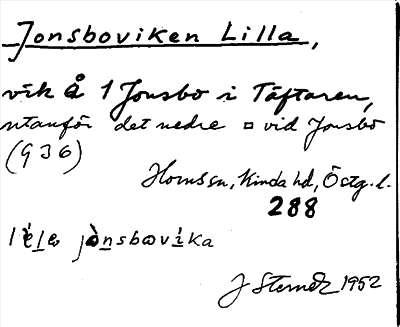 Jonsboviken Lilla,
vik å 1 Jonsbo i Täftaren,
utanför det nedre □ vid Jonsbo
(G 36)
Hornssn, Kinda hd, Östg. l.
288
J Sterner 1952